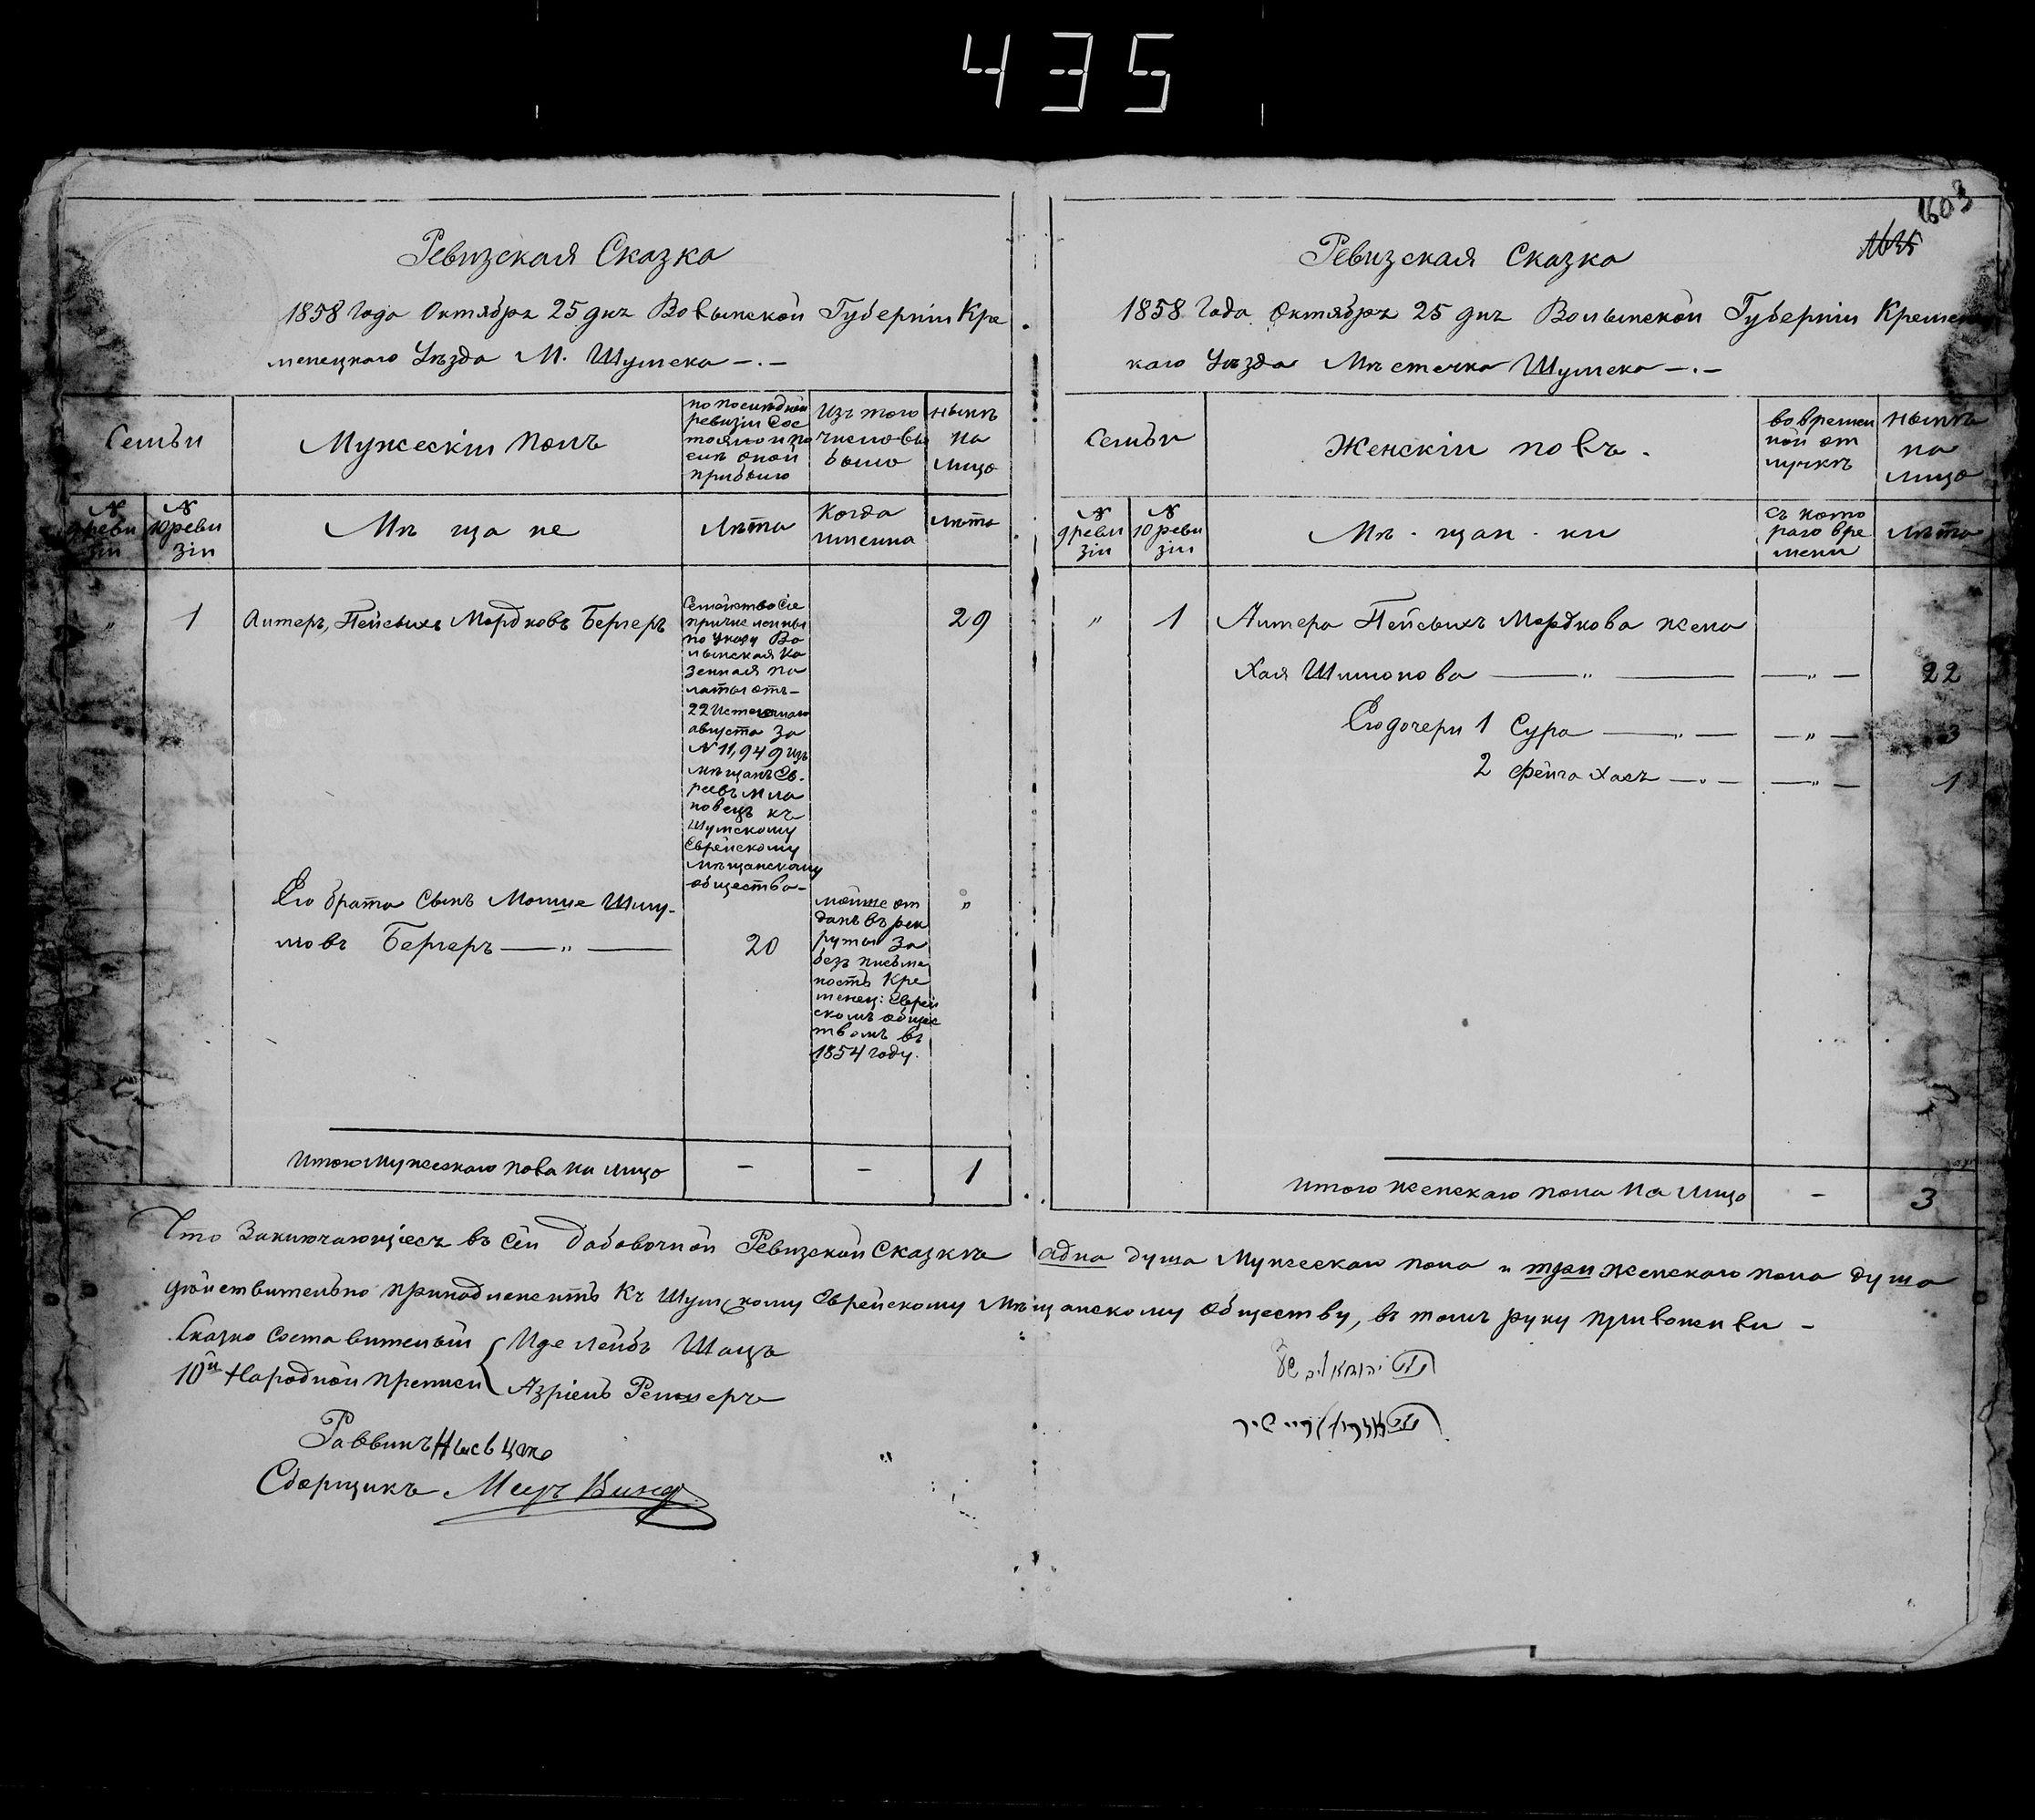 435
Ревизская Сказка
1858 Года Октября 25 дня Волынской Губерніи Кре
менецкаго Уѣзда М. Шумска
Семьи
Мужескій полъ
по последней
ревизіи сос
тояло и по
слѣ оной
прибыло
Изъ того
числа вы
было
нынѣ
на
лицо
№
9 реви
зіи
№
10 реви
зіи
Мѣ ща не
Лѣта
Когда
именно
Лѣта
" 1 Алтеръ, Пейсыхъ Мордковъ Бергеръ 29
Семейство сіе
причисленны
по указу Во
лынская Ка
зенная па
латы отъ
22 Истекшаго
августа за
№ 11,949 изъ
мѣщанъ Ев-
реевъ
къ
Шумскому
Еврейскому
Мѣщанскому
общества
Его брата Сынъ Мошие Шму-
ловъ Бергеръ — " — 20 "
мойше от
данъ въ рек
руты за
безъ письме
ность Кре
менец: Еврей
скомъ общес
твомъ въ
1854 году.
Итого мужескаго пола на лицо - - 1
1603
Ревизская Сказка
1858 Года Октября 25 дня Волынской Губерніи Кременец
каго Уѣзда Мѣстечка Шумска
Семьи
Женскій полъ.
во времен
ной от
лучкѣ
нынѣ
на
лицо
№
9 реви
зіи
№
10 реви
зіи
Мѣ - щан - ки
съ кото
раго вре
мени
Лѣта
" 1 Алтера Пейсыхъ Мордкова жена
Хая Шимонова — " — — " — 22
Его дочери 1 Сура — " — — " — 3
2 Фейга Хася — " — — " — 1
Итого женскаго пола на лицо - 3
Что Заключающіеся въ сей добавочной Ревизской Сказкѣ одна душа Мужескаго пола и три женскаго пола душа
дѣйствительно принадлежитъ Къ Шумскому Еврейскому Мѣщанскому Обществу, въ томъ руку приложили -
Сказко Составительй Иде Лейбъ Шацъ
10й Народной Азріель
Раввинъ
Сборщикъ Меер